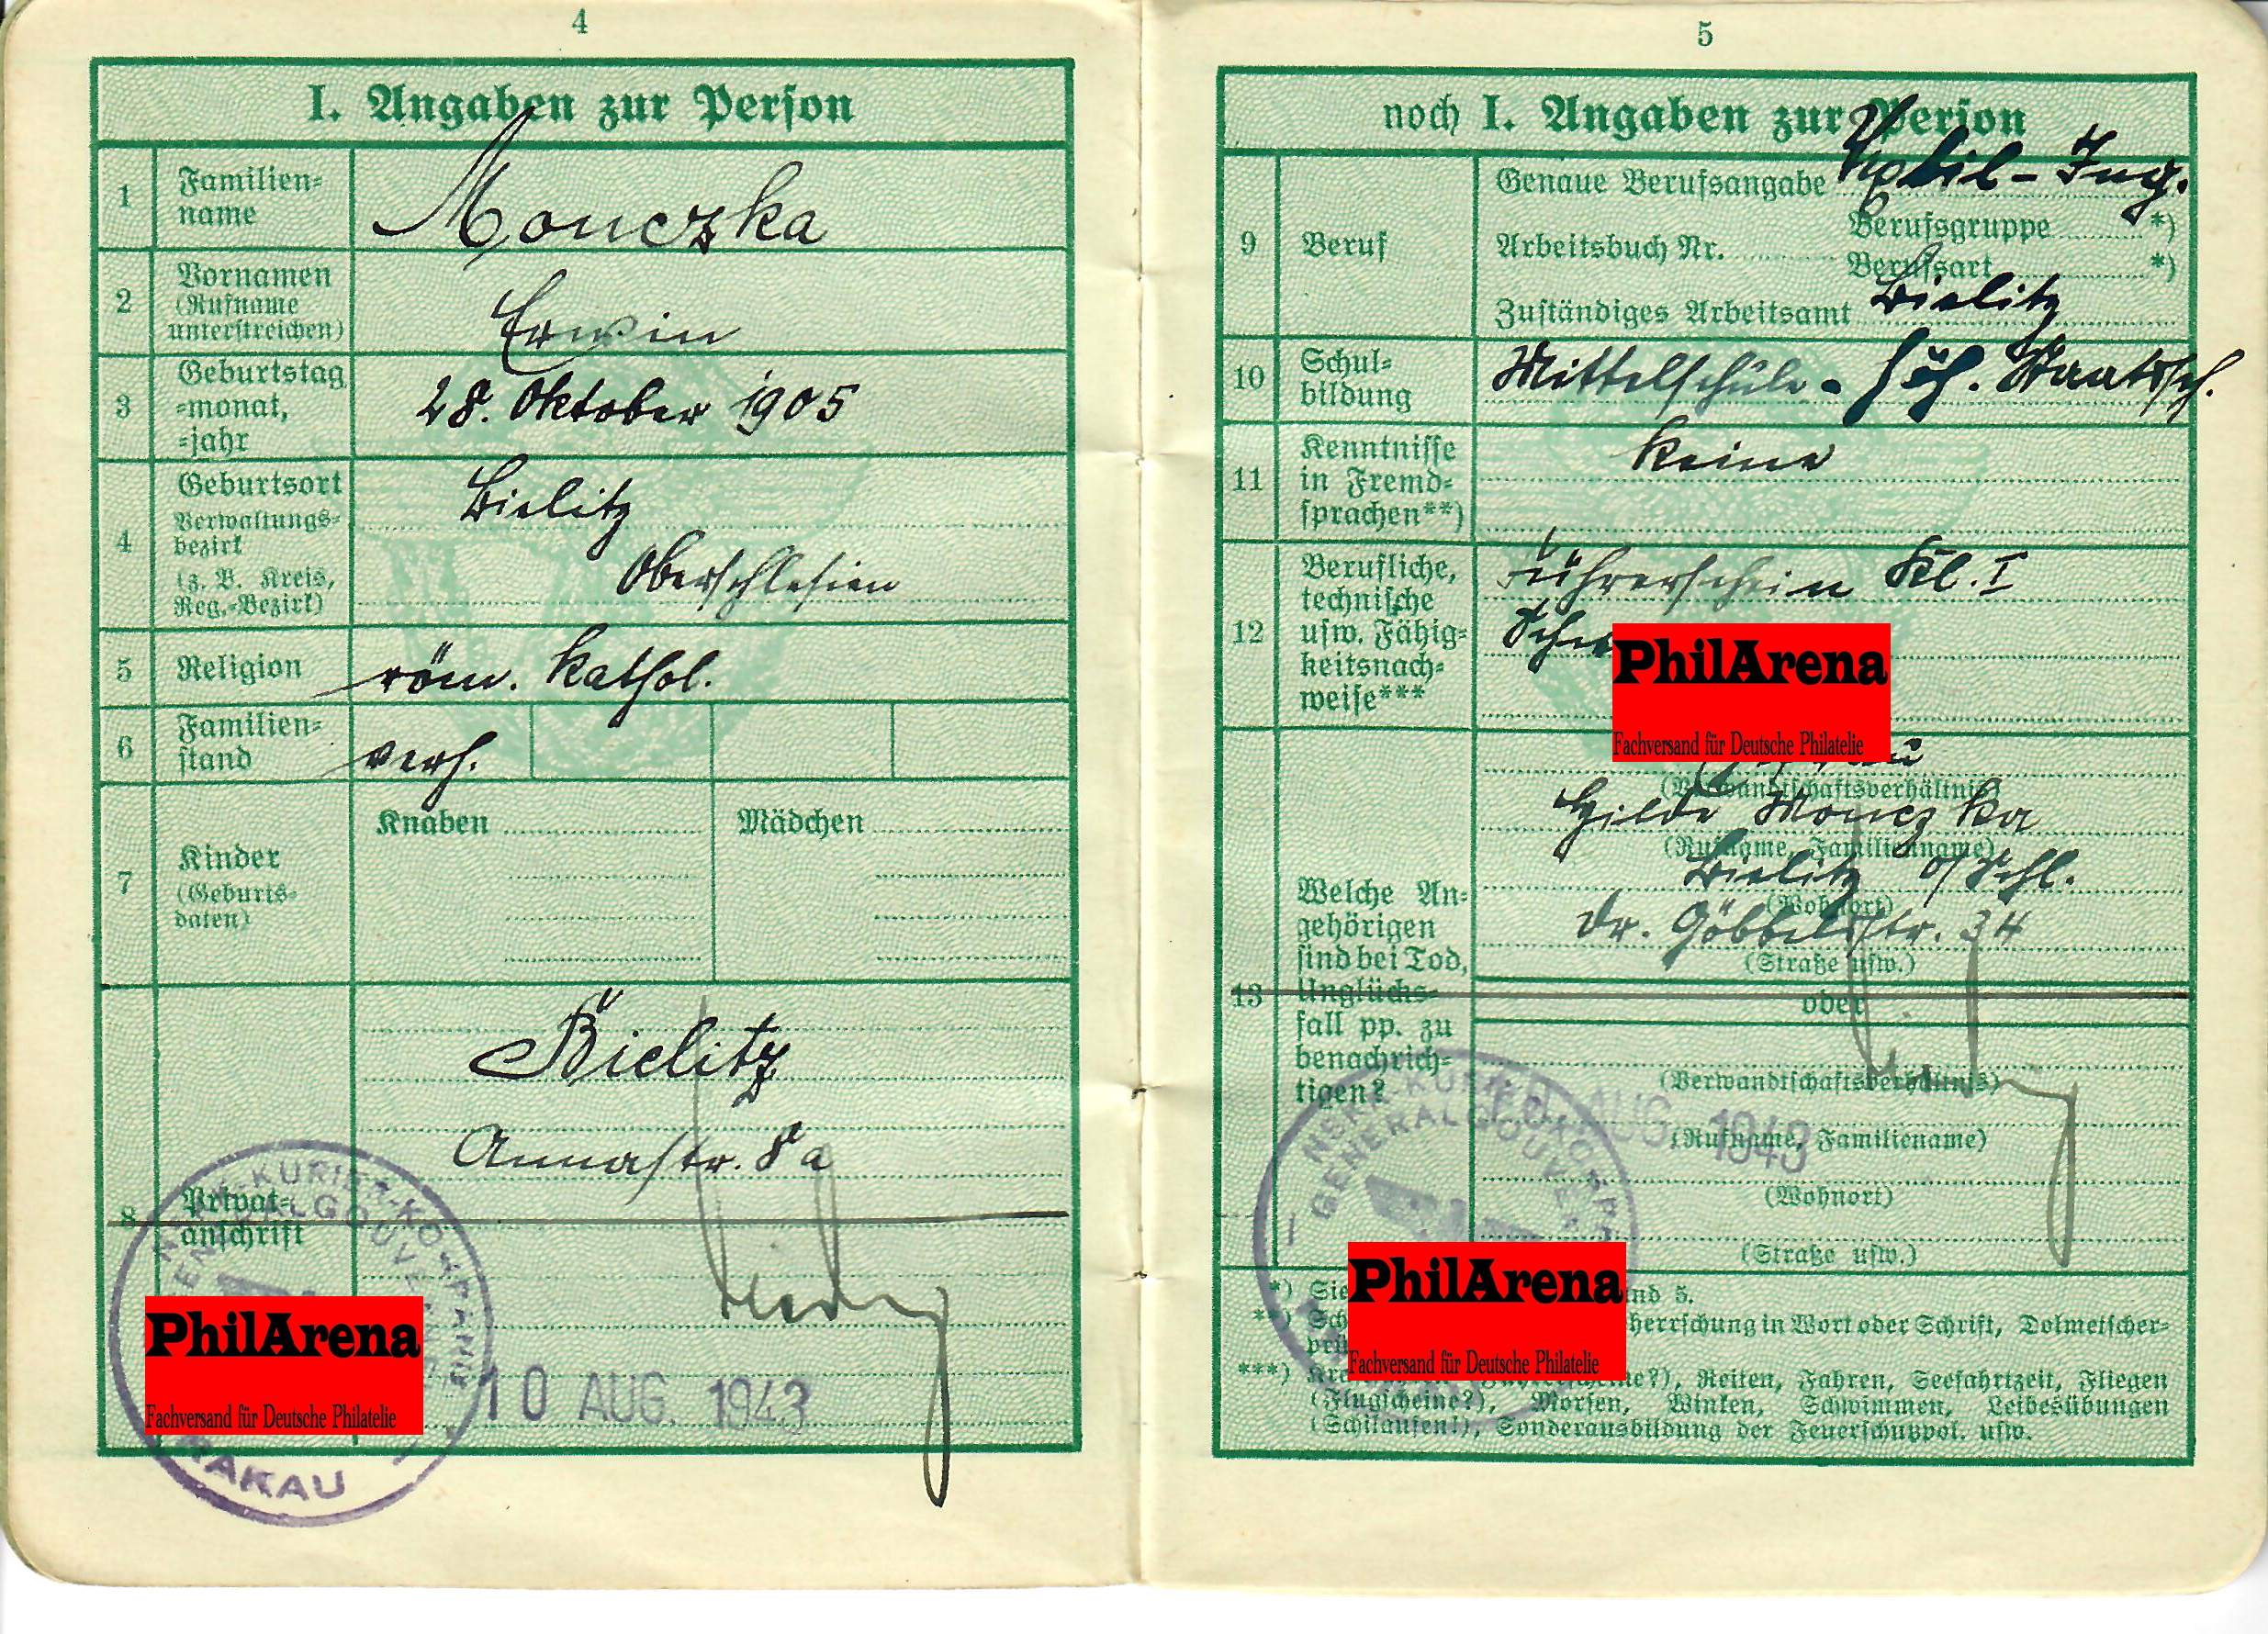 4
I. Angaben zur Person
1
Familien-
name
Monczka
2
Vornamen
(Rufname
unterstreichen)
Erwin
3
Geburtstag
-monat,
-jahr
28. Oktober 1905
4
Geburtsort
Verwaltungs-
bezirk
(z. B. Kreis,
Reg.-Bezirk)
Bielitz
Oberschlesien
5
Religion
röm. kathol.
6
Familien-
stand
verh.
7
Kinder
(Geburts-
daten)
Knaben
Mädchen
8
Privat-
anschrift
Bielitz
Annastr. 8a
KURIER-KOMPANIE
GENERALGOUVE
KRAKAU
10 AUG. 1943
PhilArena
Fachversand für Deutsche Philatelie
5
noch I. Angaben zur Person
9
Beruf
Genaue Berufsangabe Textil-Ing.
Berufsgruppe *)
Arbeitsbuch Nr.
Berufsart *)
Zuständiges Arbeitsamt Bielitz
10
Schul-
bildung
Mittelschule - höh. Staatssch.
11
Kenntnisse
in Fremd-
sprachen**)
keine
12
Berufliche,
technische
usw. Fähig-
keitsnach-
weise***
Führerschein Kl. I
PhilArena
Fachversand für Deutsche Philatelie
13
Welche An-
gehörigen
sind bei Tod,
Unglücks-
fall pp. zu
benachrich-
tigen?
(Verwandtschaftsverhältnis)
Hilde Monczka
(Rufname, Familienname)
Bielitz O/Schl.
(Wohnort)
Dr. Göbbelsstr. 34
(Straße usw.)
oder
(Verwandtschaftsverhältnis)
(Rufname, Familiename)
(Wohnort)
(Straße usw.)
KURIER-KOMPA
GENERALGOUVE
AUG. 1943
*) Sie nd 5.
**) Sch herrschung in Wort oder Schrift, Dolmetscher-
prü
***) Kra ne?), Reiten, Fahren, Seefahrtzeit, Fliegen
(Flugscheine?), Morsen, Winken, Schwimmen, Leibesübungen
(Schilaufen!), Sonderausbildung der Feuerschutzpol. usw.
PhilArena
Fachversand für Deutsche Philatelie